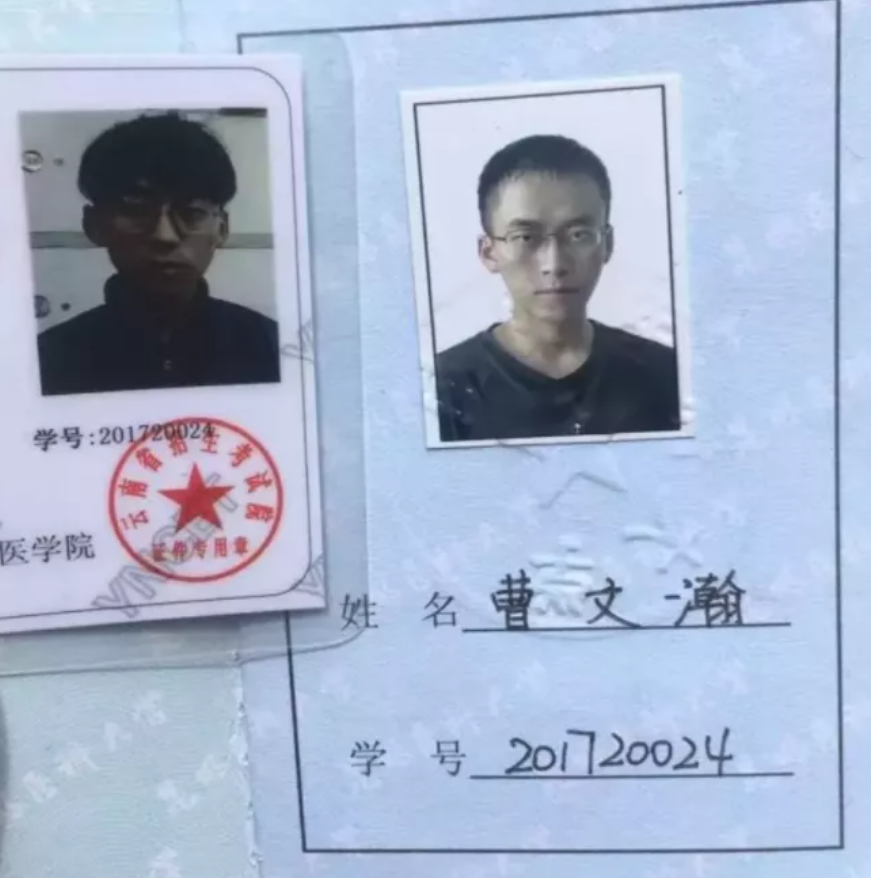 学号:201720024
云南省招生考试院
证件专用章
医学院
YNCET
姓 名 曹文瀚
学 号 201720024